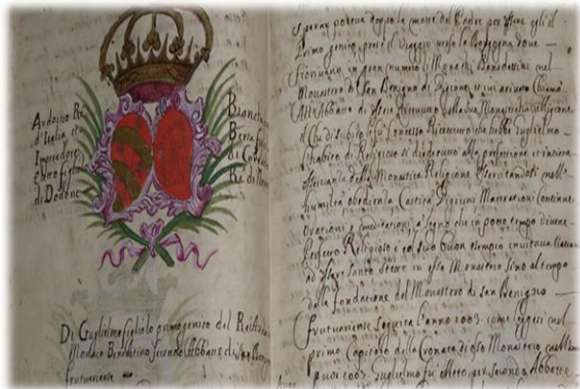 Ardoino Re
d'Italia et
Imperadore
figlio
di Dodone
Bianca
Berta
di
Re di
Di Guglielmo figliolo primogenito del Re
Monaco Benedettino secondo Abbate di San
fruttuariense
sperar poteva doppo la morte del Padre per essere egli il
Primo genito, prese il Viaggio verso la Borgogna dove
fiorivano in gran numero li Monachi Benedettini nel
Monastero di San Benigno di Digione, et ivi arrivato chiamò
All'Abbate di esser Ricevuto nella sua Monastica Religione
il che di subito fu Concesso Ricevuto che hebbe Guglielmo
l'habito di Religioso si diede tutto alla perfetione et intiera
osservanza della Monastica Religione essercitandosi nell'
humiltà obedienza Carità Digiuni Macerazioni Continue
orazioni e meditazioni a segno che in poco tempo divenne
Perfetto Religioso e col suo buon esempio invitava
ad esser santo stette in esso Monastero sino al tempo
della fondazione del Monastero di San Benigno
fruttuariense seguita l'anno 1003 come leggesi nel
primo Capitolo della Cronaca di esso Monastero
1003 Guglielmo fu eletto per secondo Abbate